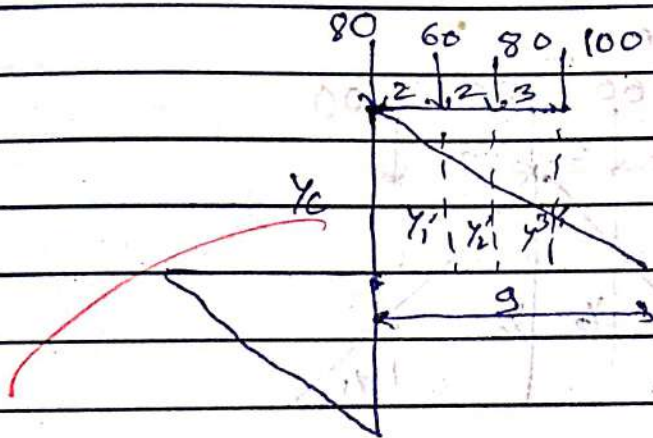 80 60 80 100
2 2 3
Yc y1' y2' y3'
9